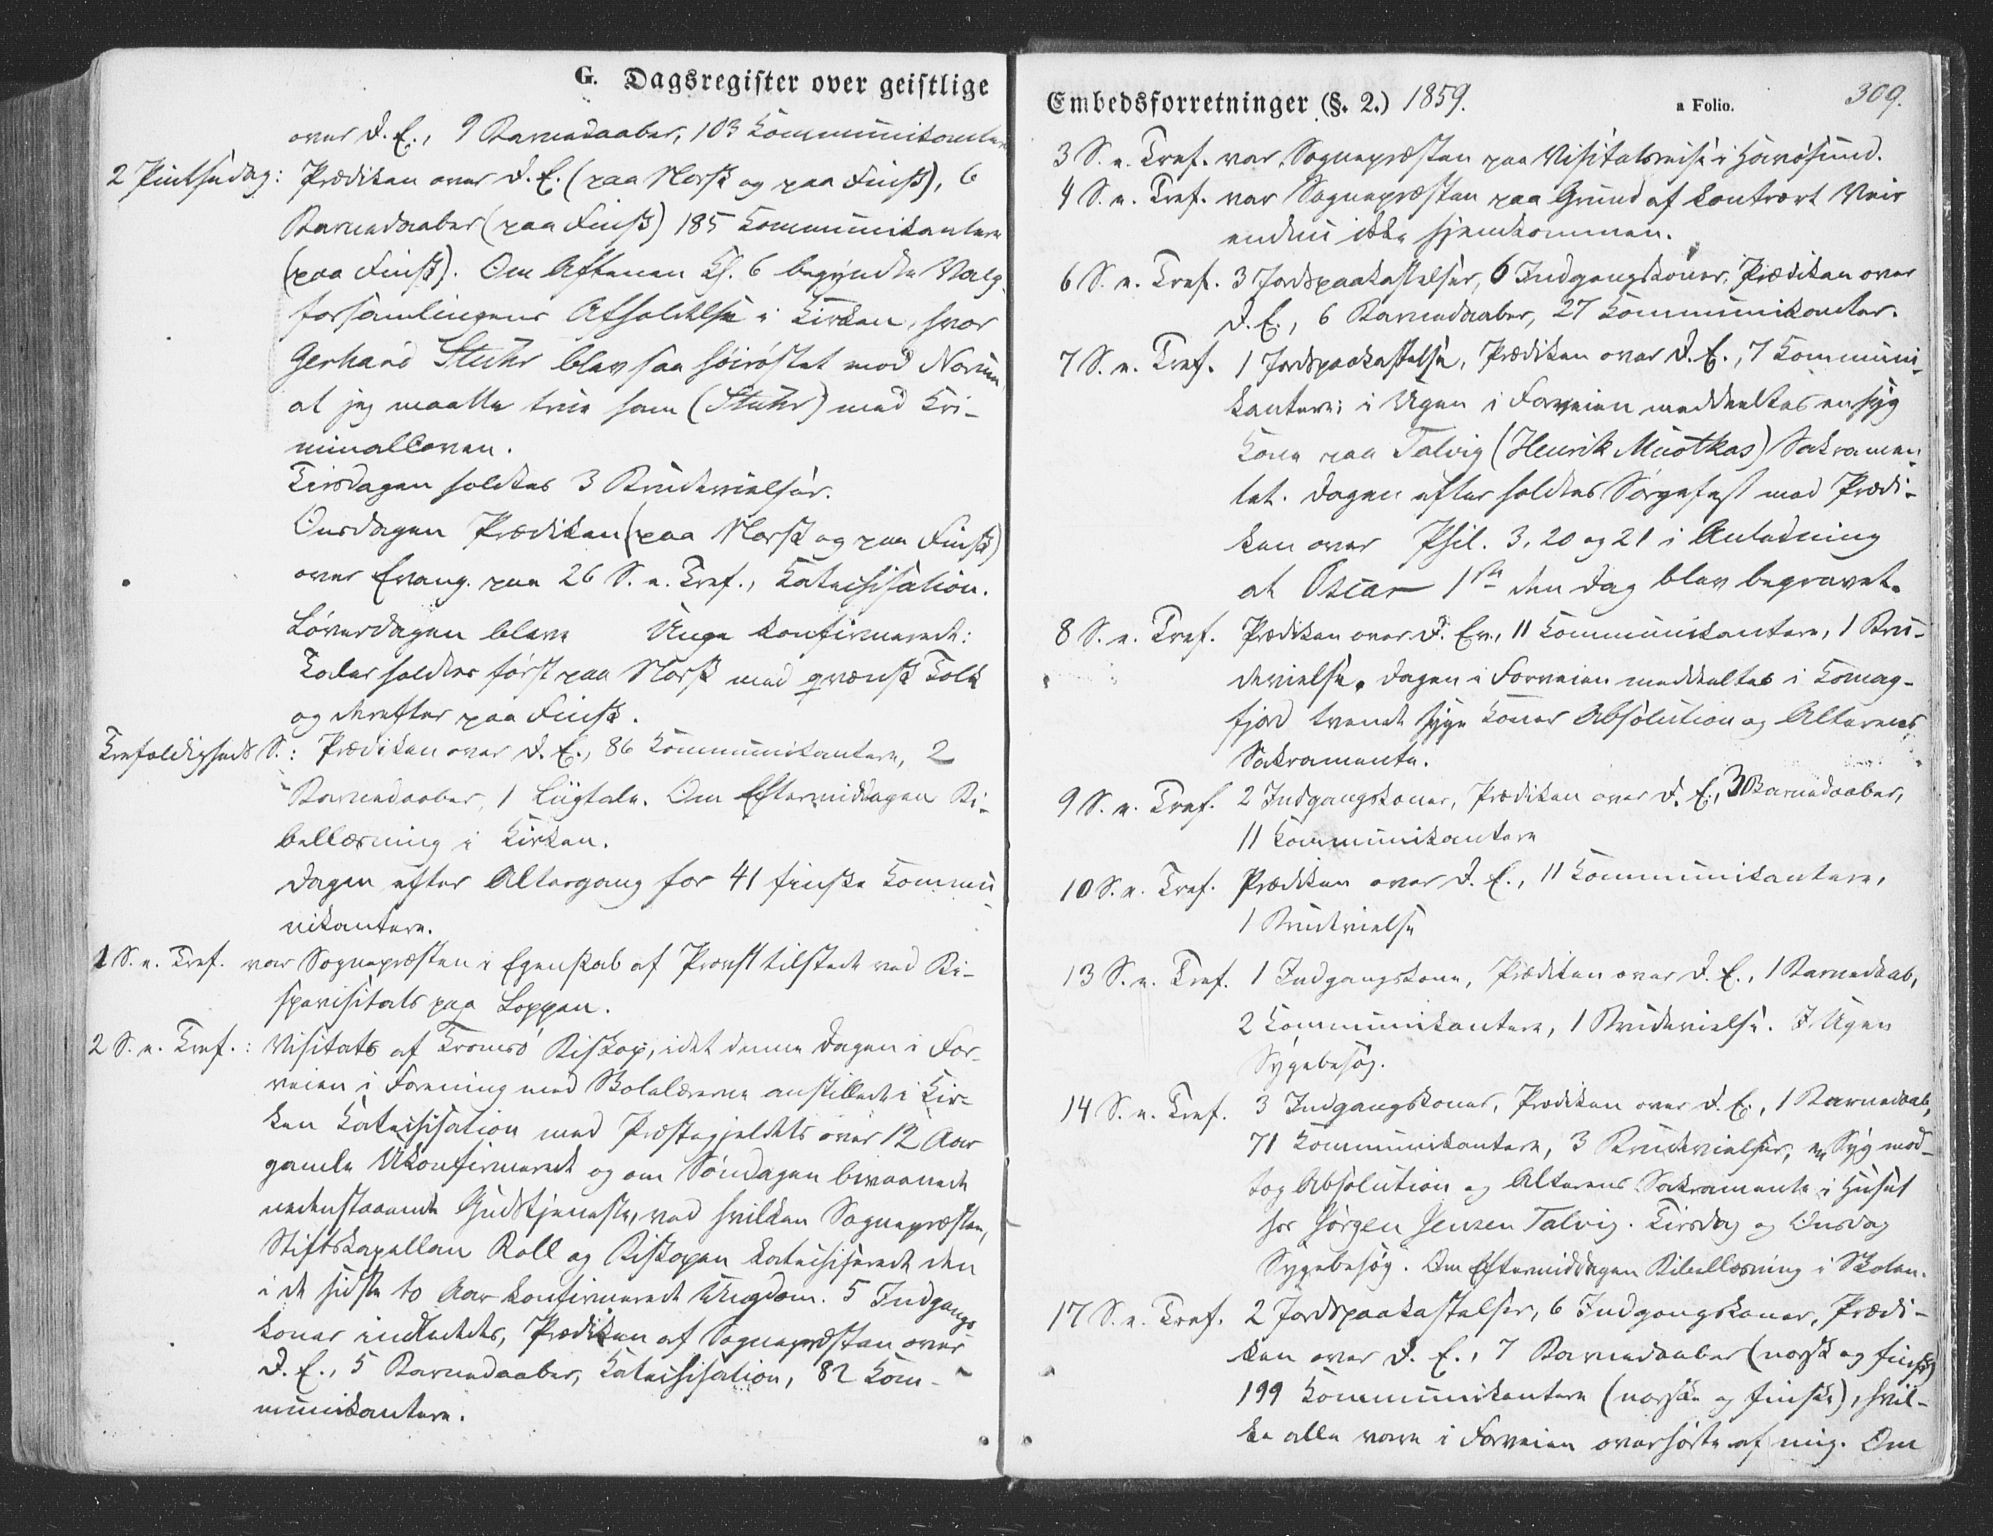 G. Dagsregister over geistlige
over D. E., 9 Barnedaaber, 103 Kommunikanter
2 Pintsedag: Prædiken over D. E. (paa Norsk og paa Finsk), 6
Barnedaaber (paa Finsk) 185 Kommunikantere
(paa Finsk). Om Aftenen Kl. 6 begyndte Valg-
forsamlingens Afholdelse i Kirken, hvor
Gerhard Stuhr blev saa høirøstet mod
at jeg maatte true ham (Stuhr) med Kri-
minalloven.
Tirsdagen holdtes 3 Brudevielser.
Onsdagen Prædiken (paa Norsk og paa Finsk)
over Evang. paa 26 S. e. Tref., Katechisation.
Løverdagen bleve Unge konfirmerede:
Taler holdtes først paa Norsk med qvænsk Tolk
og derefter paa Finsk.
Trefoldigheds S.: Prædiken over D. E., 86 Kommunikantere, 2
Barnedaaber, 1 Liigtale. Om Eftermiddagen Bi-
bellæsning i Kirken.
Dagen efter Altergang for 41 finske Kommu-
nikantere.
1 S. e. Tref. var Sognepræsten i Egenskab af Provst tilstede ved Bi-
spevisitats paa Loppen.
2 S. e. Tref.: Visitats af Tromsø Biskop, idet denne Dagen i For-
veien i Forening med Skolelærerne anstillede i Kir-
ken Katechisation med Præstegjeldets over 12 Aar
gamle Ukonfirmerede og om Søndagen bivaanede
nedenstaaende Gudstjeneste, ved hvilken Sognepræsten,
Stiftskapellan Roll og Biskopen katechiserede den
i de sidste to Aar konfirmerede Ungdom. 5 Indgangs
koner indledtes, Prædiken af Sognepræsten over
D. E., 5 Barnedaaber, Katechisation, 82 Kom-
munikantere.
Embedsforretninger (§. 2.) 1859. a Folio. 309.
3 S. e. Tref. var Sognepræsten paa Visitatsreise i Havøsund.
4 S. e. Tref. var Sognepræsten paa Grund af kontrært Veir
endnu ikke hjemkommen.
6 S. e. Tref. 3 Jordspaakastelser, 6 Indgangskoner, Prædiken over
D. E., 6 Barnedaaber, 27 Kommunikanter.
7 S. e. Tref. 1 Jordspaakastelse, Prædiken over D. E., 7 Kommuni-
kantere; i Ugen i Forveien meddeeltes en syg
Kone paa Talvig (Henrik Muotkas) Sakramen-
tet. Dagen efter holdtes Sørgefest med Prædi-
ken over Phil. 3, 20 og 21 i Anledning
at Oscar 1ste den Dag blev begravet.
8 S. e. Tref. Prædiken over D. Ev., 11 Kommunikantere, 1 Bru-
devielse. Dagen i Forveien meddeeltes i Komag-
fjord tvende syge Koner Absolution og Alterens
Sakramente.
9 S. e. Tref. 2 Indgangskoner, Prædiken over D. E., 3 Barnedaaber,
11 Kommunikantere
10 S. e. Tref. Prædiken over D. E., 11 Kommunikantere,
1 Brudevielse
13 S. e. Tref. 1 Indgangskone, Prædiken over D. E., 1 Barnedaab,
2 Kommunikantere, 1 Brudevielse. I Ugen
Sygebesøg.
14 S. e. Tref. 3 Indgangskoner, Prædiken over D. E., 1 Barnedaab,
71 Kommunikantere, 3 Brudevielser, en Syg mod-
tog Absolution og Alterens Sakramente i Huset
hos Jørgen Jensen Talvig. Tirsdag og Onsdag
Sygebesøg. Om Eftermiddagen Bibellæsning i Skolen.
17 S. e. Tref. 2 Jordspaakastelser, 6 Indgangskoner, Prædi-
ken over D. E., 7 Barnedaaber (norsk og finsk)
199 Kommunikantere (norske og finske), hvil-
ke alle vare i Forveien overhørte af mig. Om